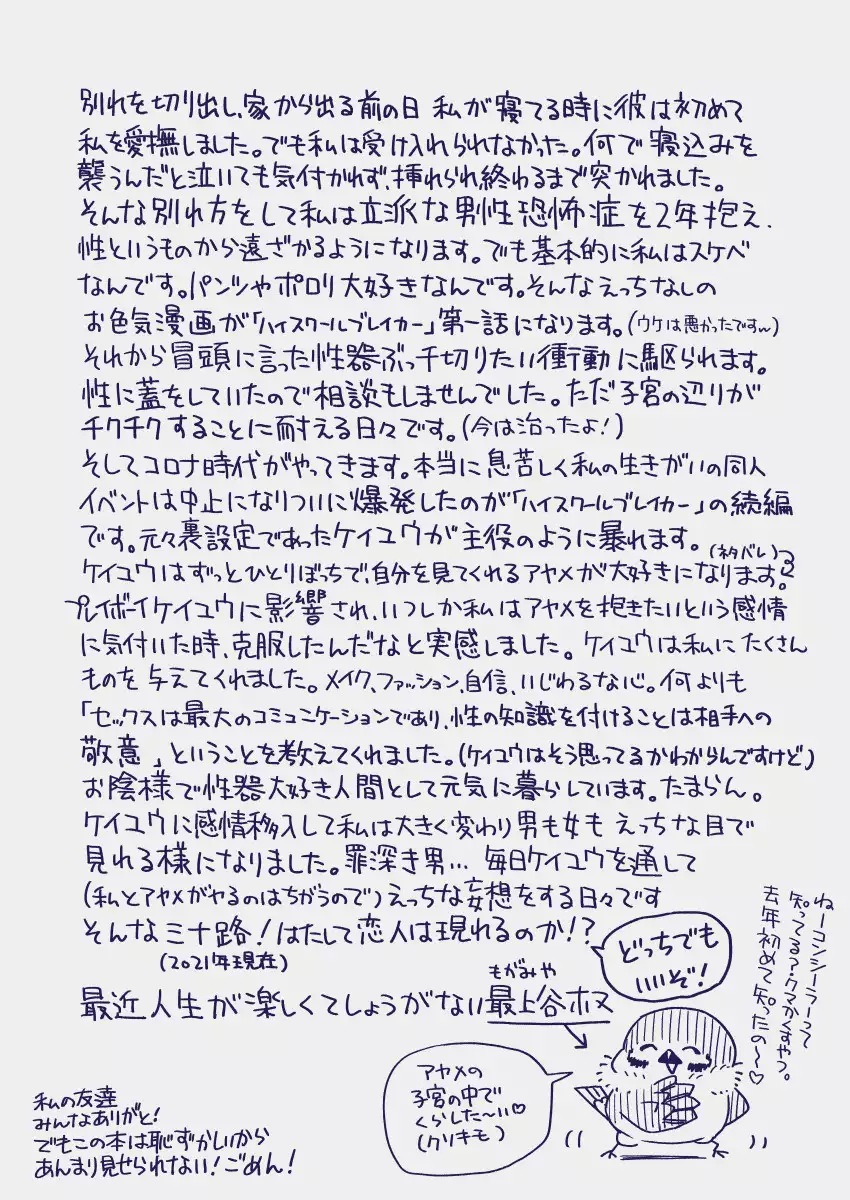 別れを切り出し、家から出る前の日 私が寝てる時に彼は初めて
私を愛撫しました。でも私は受け入れられなかった。何で寝込みを
襲うんだと泣いても気付かれず、挿れられ終わるまで突かれました。
そんな別れ方をして私は立派な男性恐怖症を2年抱え、
性というものから遠ざかるようになります。でも基本的に私はスケベ
なんです。パンツやポロリ大好きなんです。そんなえっちなしの
お色気漫画が「ハイスクールブレイカー」第一話になります。(ウケは悪かったですw)
それから冒頭に言った性器ぶっ千切りたい衝動に駆られます。
性に蓋をしていたので相談もしませんでした。ただ子宮の辺りが
チクチクすることに耐える日々です。(今は治ったよ!)
そしてコロナ時代がやってきます。本当に息苦しく私の生きがいの同人
イベントは中止になりついに爆発したのが「ハイスクールブレイカー」の続編
です。元々裏設定であったケイユウが主役のように暴れます。
(ネタバレ)
ケイユウはずっとひとりぼっちで、自分を見てくれるアヤメが大好きになります。
プレイボーイケイユウに影響され、いつしか私はアヤメを抱きたいという感情
に気付いた時、克服したんだなと実感しました。ケイユウは私にたくさん
ものを与えてくれました。メイク、ファッション、自信、いじわるな心。何よりも
「セックスは最大のコミュニケーションであり、性の知識を付けることは相手への
敬意」ということを教えてくれました。(ケイユウはそう思ってるかわからんですけど)
お陰様で性器大好き人間として元気に暮らしています。たまらん。
ケイユウに感情移入して私は大きく変わり男も女もえっちな目で
見れる様になりました。罪深き男… 毎日ケイユウを通して
(私とアヤメがヤるのはちがうので)えっちな妄想をする日々です
そんなミナ路!はたして恋人は現れるのか!?
(2021年現在)
どっちでも
いいぞ!
もがみや
最近人生が楽しくてしょうがない最上谷ホヌ
ねーコンシーラーって
知ってる?クマかくすやつ。
去年初めて知ったの〜♡
アヤメの
子宮の中で
くらした〜い♡
(クソキモ)
私の友達
みんなありがと!
でもこの本は恥ずかしいから
あんまり見せられない!ごめん!